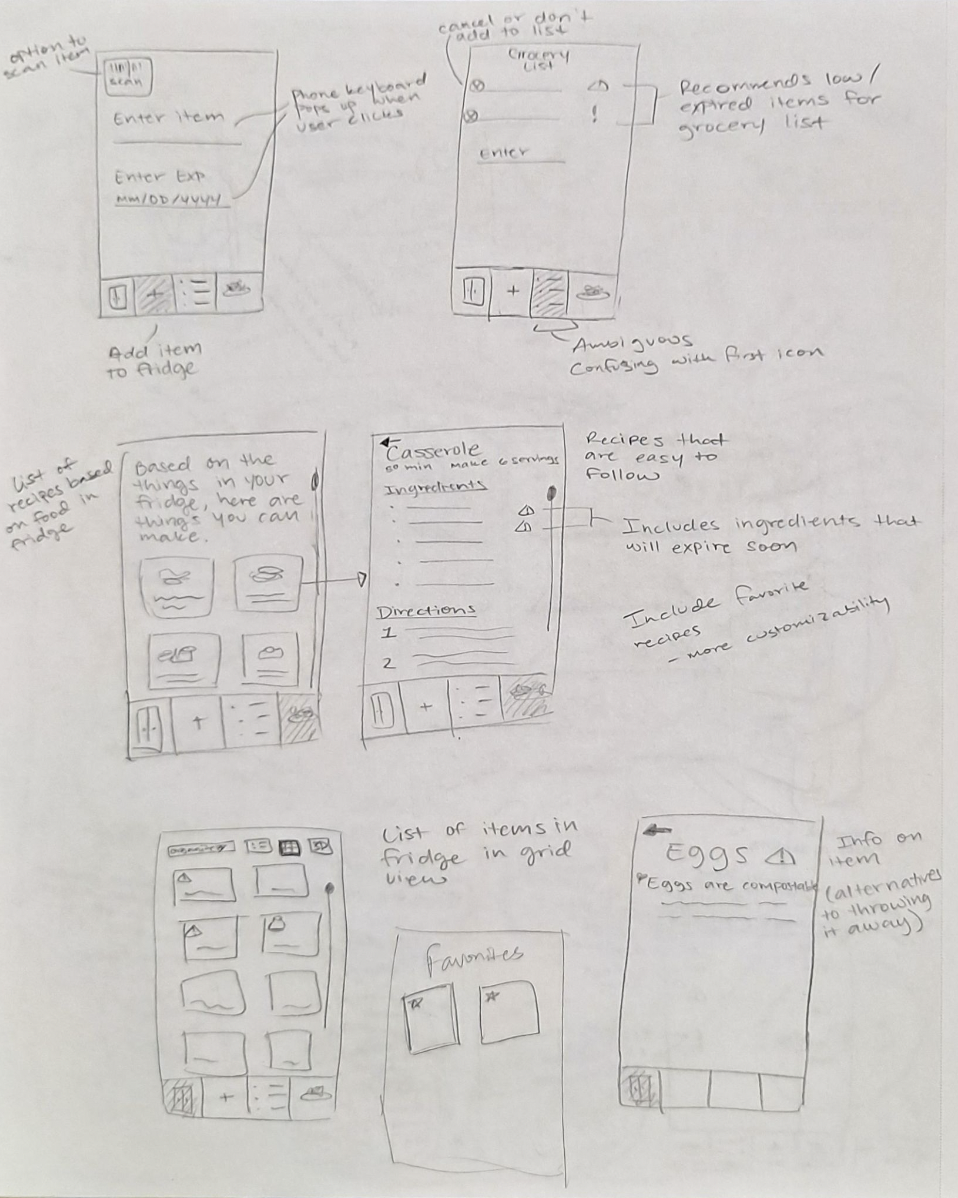 option to
scan item
scan
Enter item
Enter Exp
MM/DD/YYYY
phone keyboard
pops up when
user clicks
+
Add item
to fridge
cancel or don't
add to list
Grocery
List
!
Enter
Recommends low/
expired items for
grocery list
+
Ambiguous
Confusing with first icon
List of
recipes based
on food in
fridge
Based on the
things in your
fridge, here are
things you can
make.
+
Casserole
50 min make 6 servings
Ingredients
Directions
1
2
+
Recipes that
are easy to
follow
Includes ingredients that
will expire soon
Include favorite
recipes
- more customizability
+
List of items in
fridge in grid
view
Favorites
Eggs
Eggs are compostable
Info on
item
(alternatives
to throwing
it away)